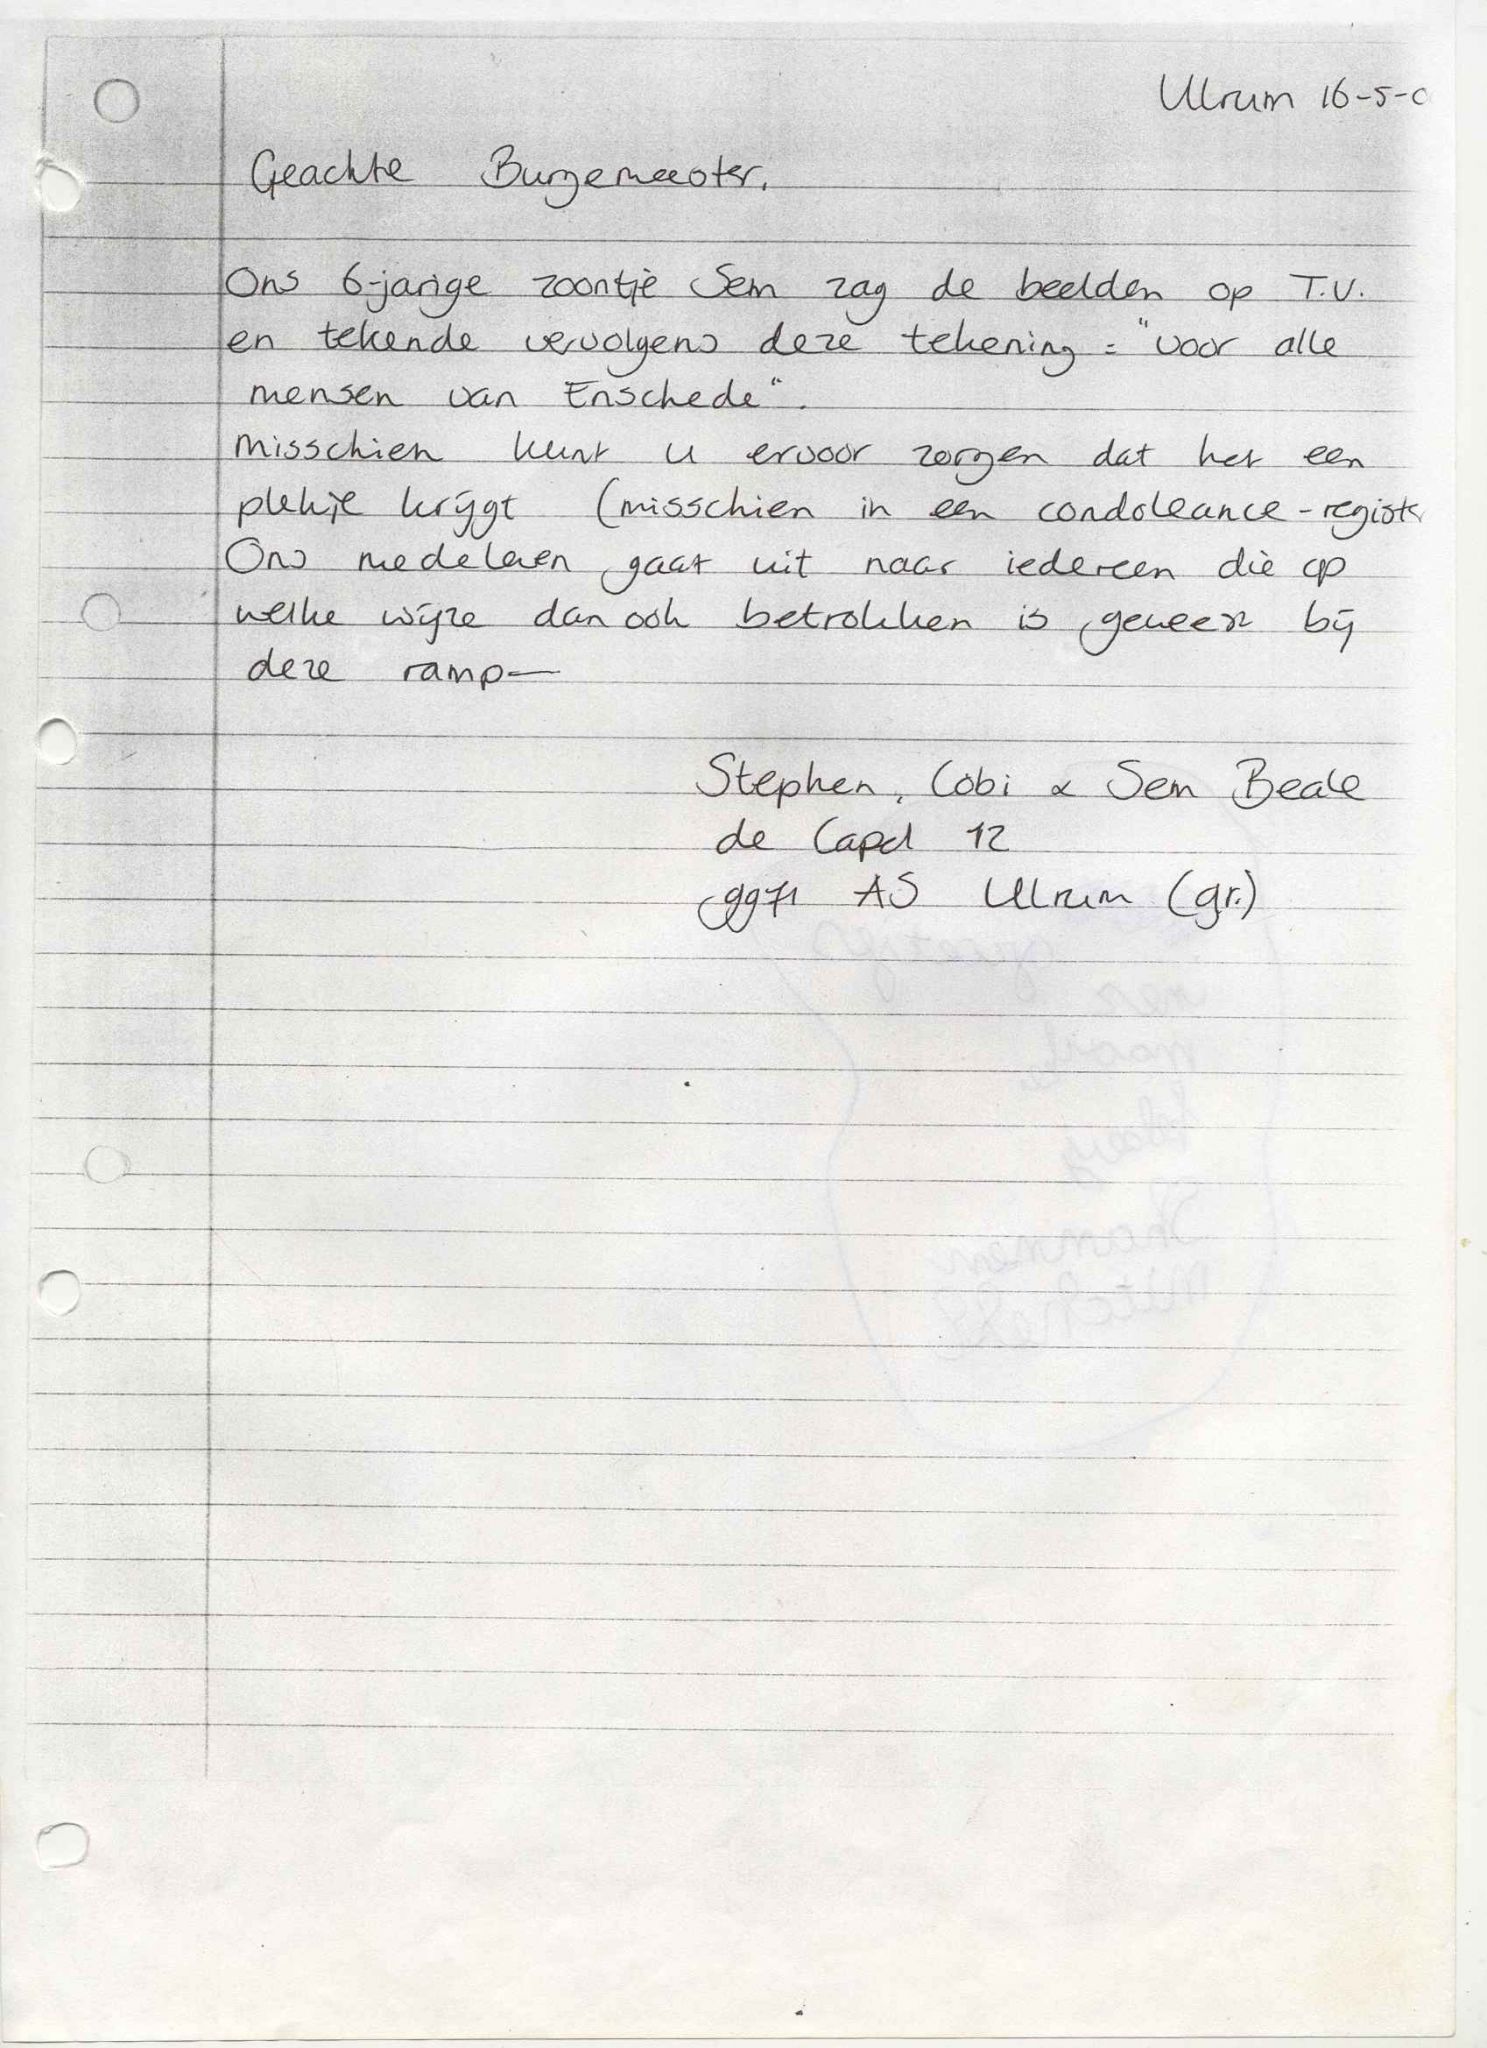 Ulrum 16-5-0
Geachte Burgemeester,
Ons 6-jarige zoontje Sem zag de beelden op T.V.
en tekende vervolgens deze tekening = "voor alle
mensen van Enschede".
Misschien kunt u ervoor zorgen dat het een
plekje krijgt (misschien in een condoleance-registe
Ons medeleven gaat uit naar iedereen die op
welke wijze dan ook betrokken is geweest bij
deze ramp—
Stephen, Cobi & Sem Beale
de Capel 12
9971 AS Ulrum (gr.)
groetjes
Shannen
Mitchell